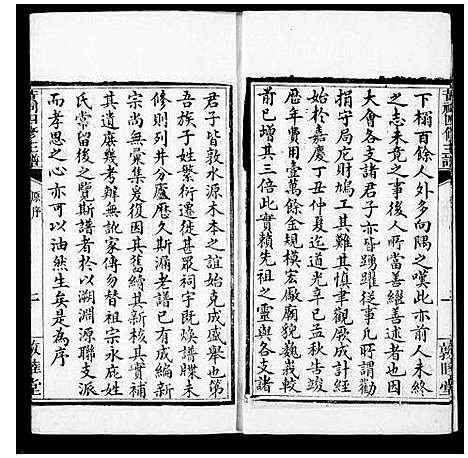 下榻百餘人外多向隅之嘆此亦前人未終
之志未竟之事後人所當善繼善述者也因
大會各支諸君子亦皆踴躍從事凡所謂勸
捐守局庀財鳩工其難其慎聿觀厥成計經
始於嘉慶丁丑仲夏迄道光辛巳孟秋告竣
歷年費用壹萬餘金規模宏敞廟貌巍峩較
前已增其三倍此實賴先祖之靈與各支諸
君子皆敦水源木本之誼始克成盛舉也第
吾族子姓繁衍遷徙甚眾祠宇既煥譜牒未
修則系列并分廬歷久斯漏老譜已有成編新
宗尚無彙集爰復因其舊續其新核其實補
其遺庶幾考辦無訛家傳勿替祖宗永庇姓
氏常留後之覽斯譜者於以溯淵源聯支派
而孝思之心亦可以油然生矣是為序
四修主譜
原序
一
敦睦堂
敦睦堂